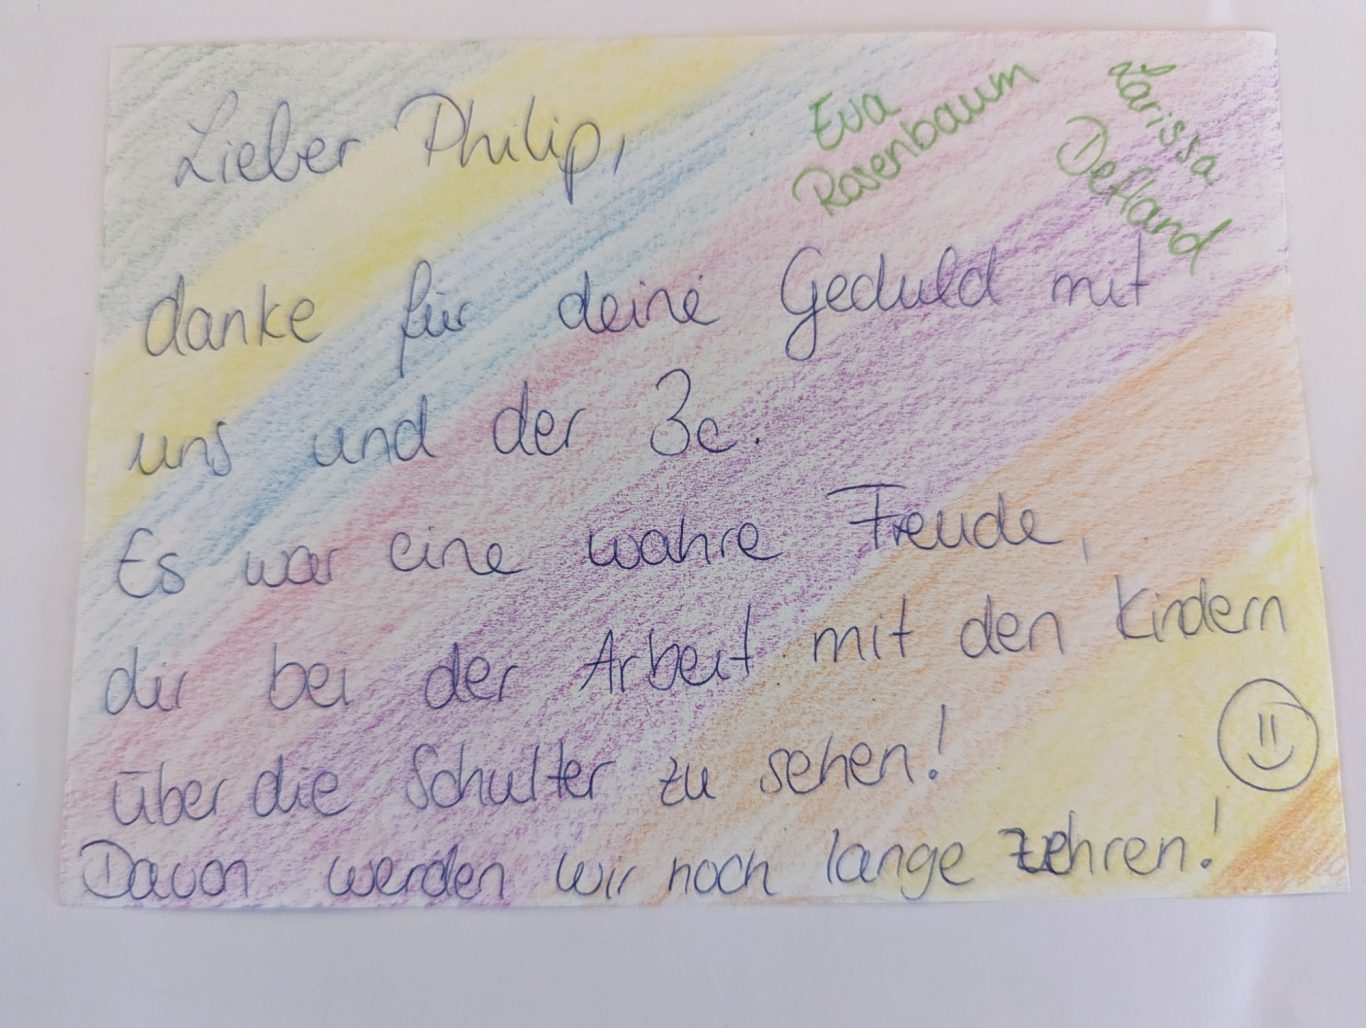 Lieber Philip,
Eva
Rosenbaum
Larissa
Deftand
danke für deine Geduld mit
uns und der 3c.
Es war eine wahre Freude,
dir bei der Arbeit mit den Kindern
über die Schulter zu sehen!
Davon werden wir noch lange zehren!